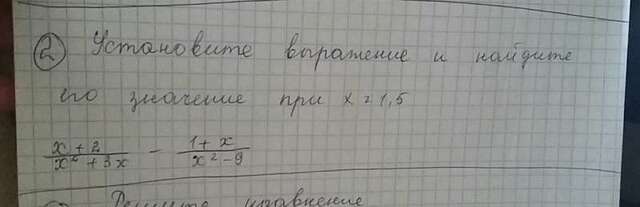 ② Установите выражение и найдите
его значение при x = 1,5
x + 2 / x² + 3x - 1 + x / x² - 9
Решите уравнение